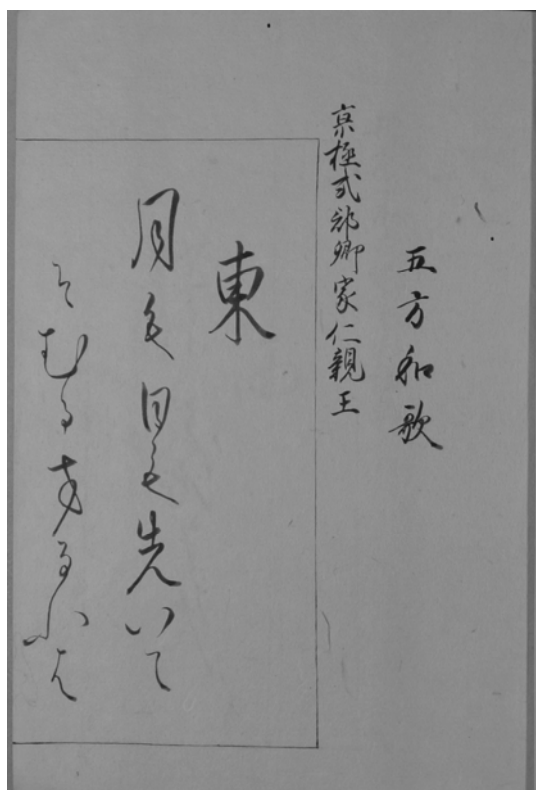 五方和歌
京極式部卿家仁親王
東
月も日も先いて
そむる